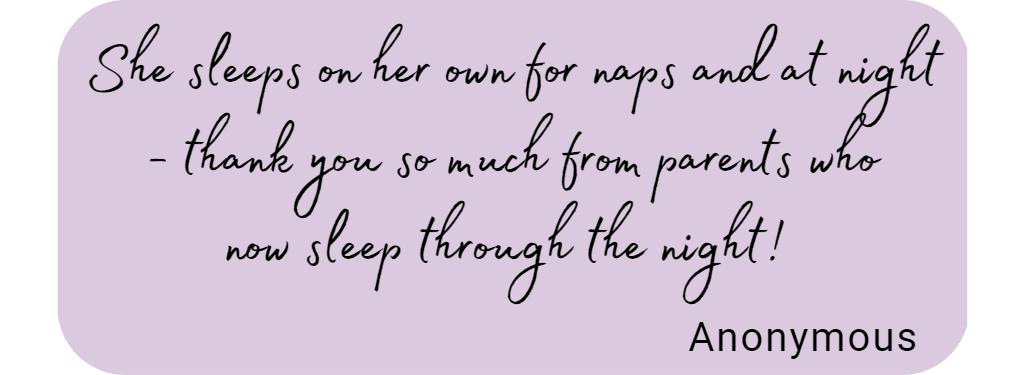 She sleeps on her own for naps and at night
- thank you so much from parents who
now sleep through the night!
Anonymous